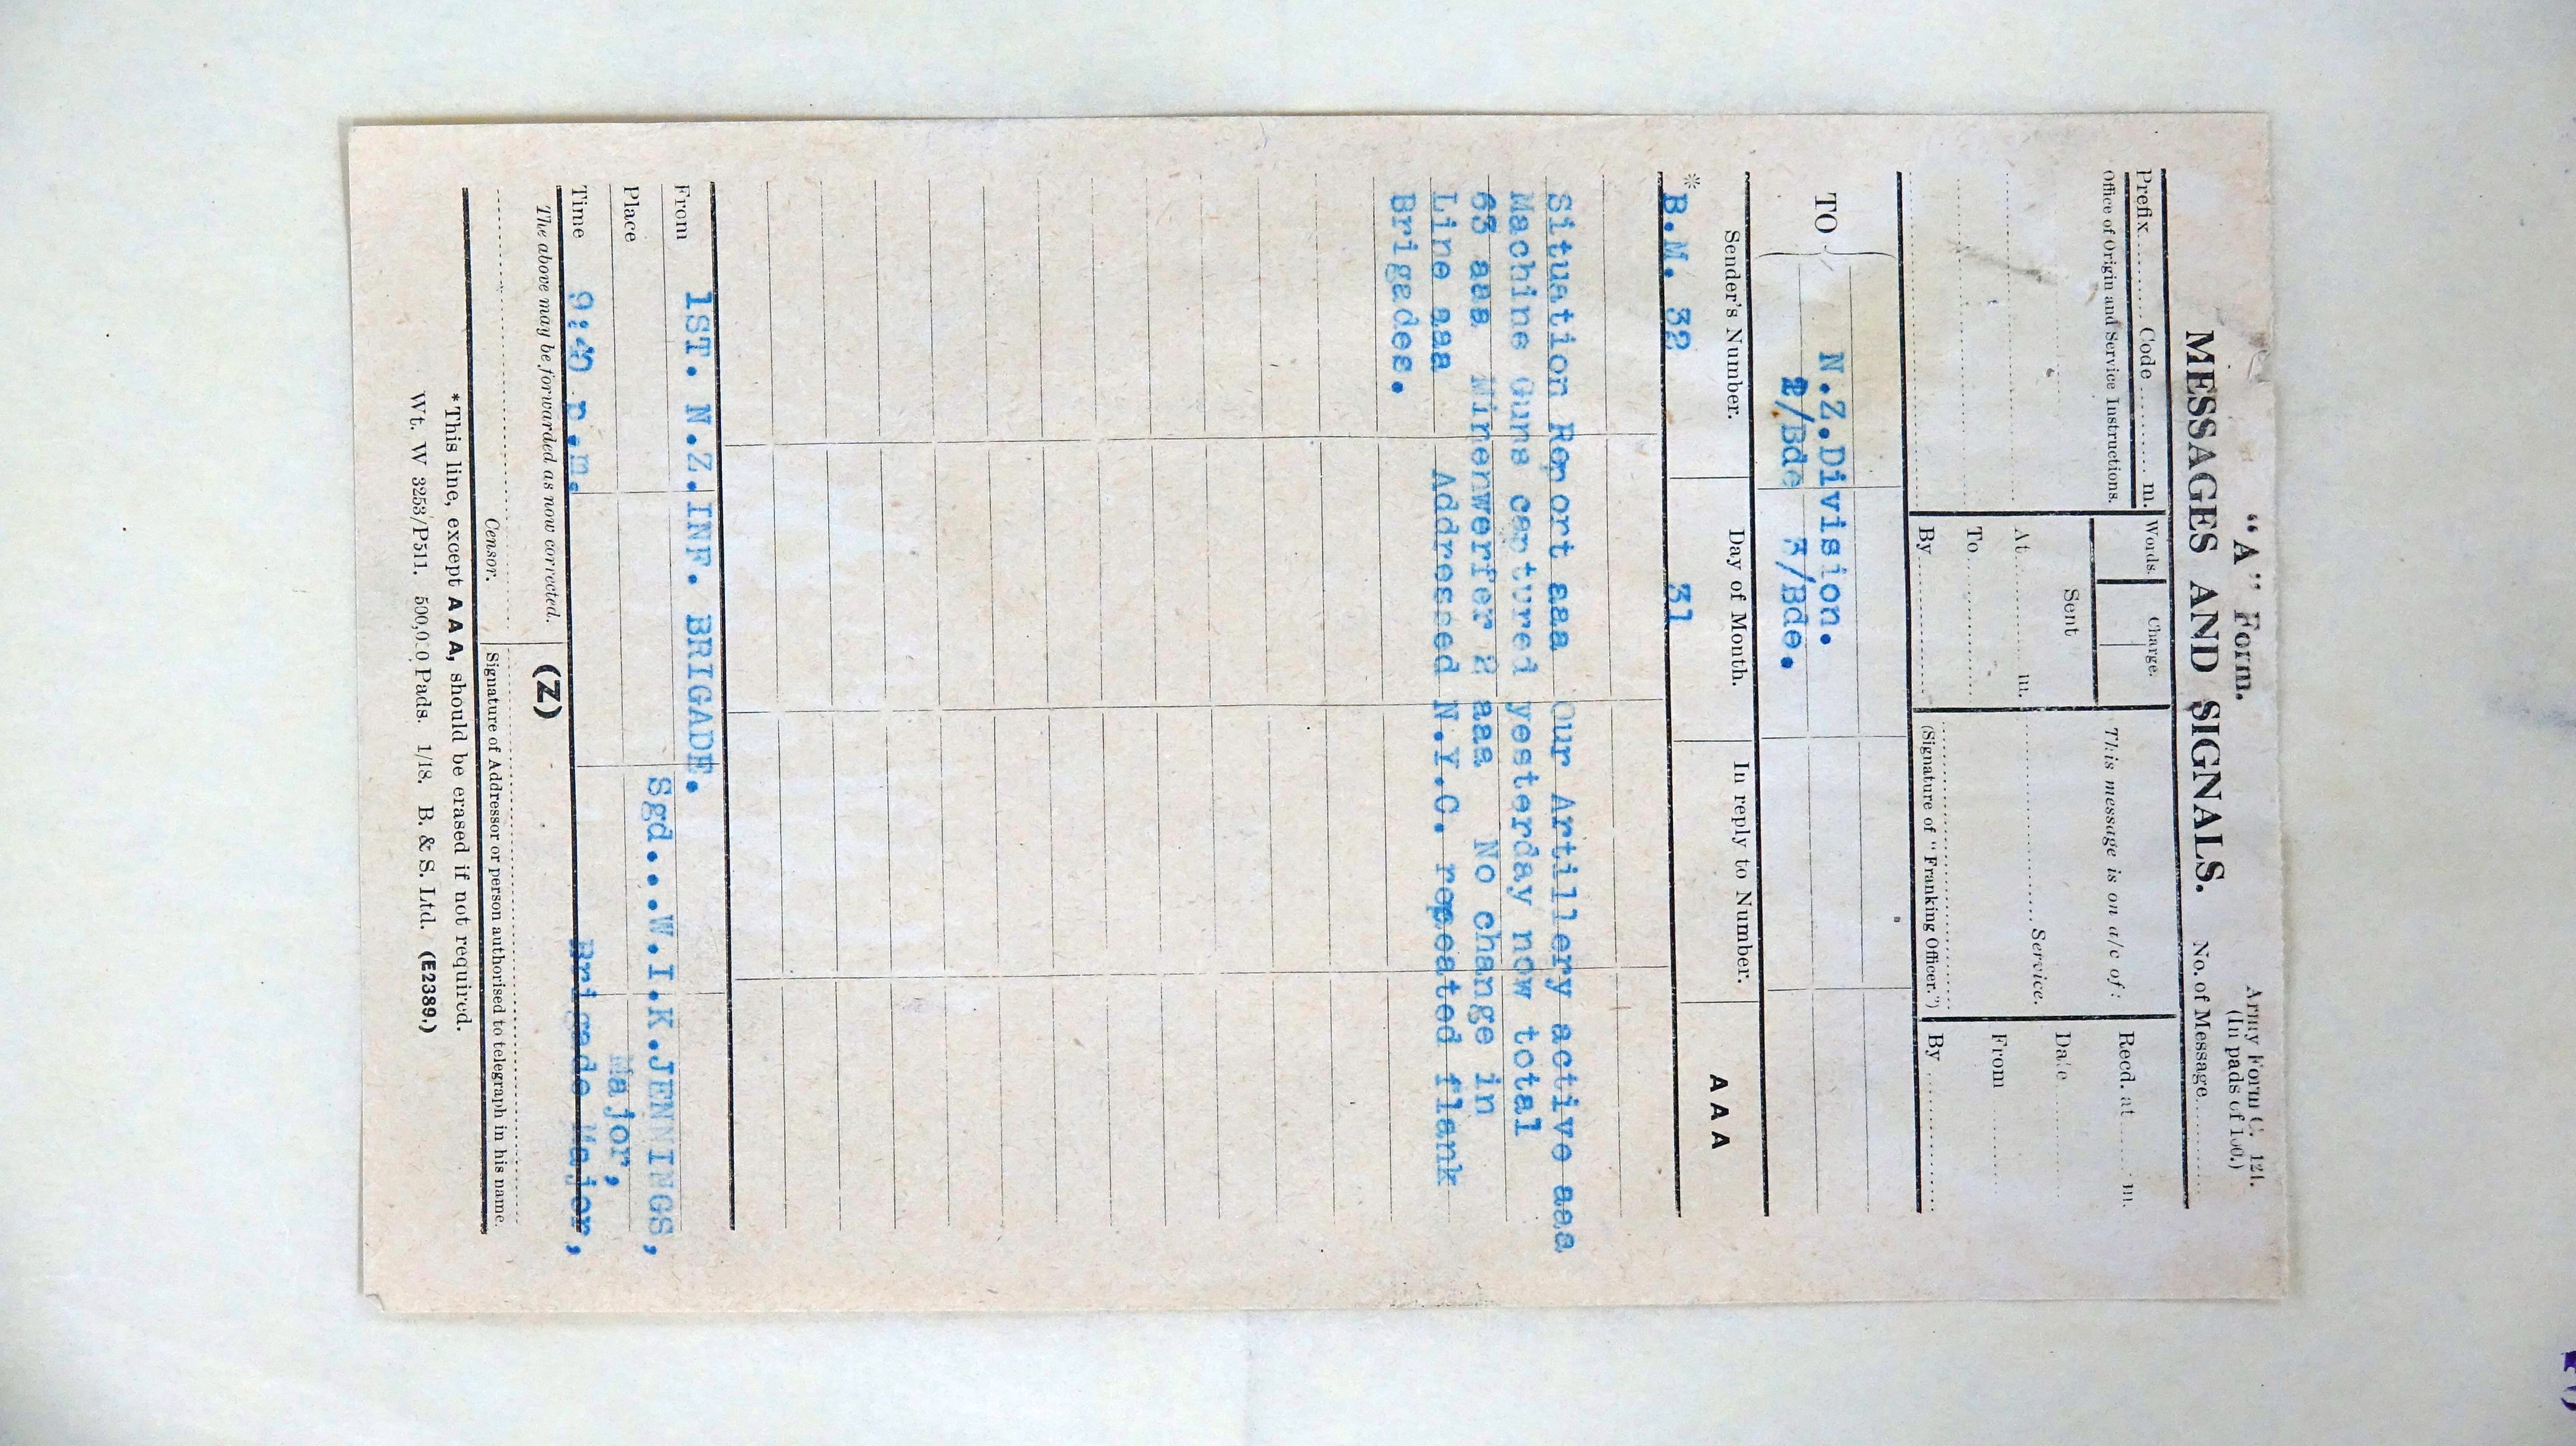 "A" Form.
Army Form C. 121.
(In pads of 100.)
MESSAGES AND SIGNALS.
No. of Message..........
Prefix........ Code......... m.
Words.
Charge.
Office of Origin and Service Instructions.
Sent
At............ m.
To............
By............
This message is on a/c of:
............ Service.
(Signature of "Franking Officer.")
Recd. at...... m.
Date......
From ......
By ......
TO
N.Z.Division.
2/Bde 3/Bde.
Sender's Number.
Day of Month.
In reply to Number.
A A A
* B.M. 32
31
Situation Report aaa Our Artillery active aaa
Machine Guns captured yesterday now total
63 aaa Minenwerfer 2 aaa No change in
Line aaa Addressed N.Y.C. repeated flank
Brigades.
From 1ST. N.Z.INF. BRIGADE.
Place
Sgd....W.I.K.JENNINGS,
Major,
Time 9:40 p.m.
Brigade Major,
The above may be forwarded as now corrected.
(Z)
Censor.
Signature of Addressor or person authorised to telegraph in his name.
*This line, except A A A, should be erased if not required.
Wt. W 3253/P511. 500,000 Pads. 1/18. B. & S. Ltd. (E2389.)